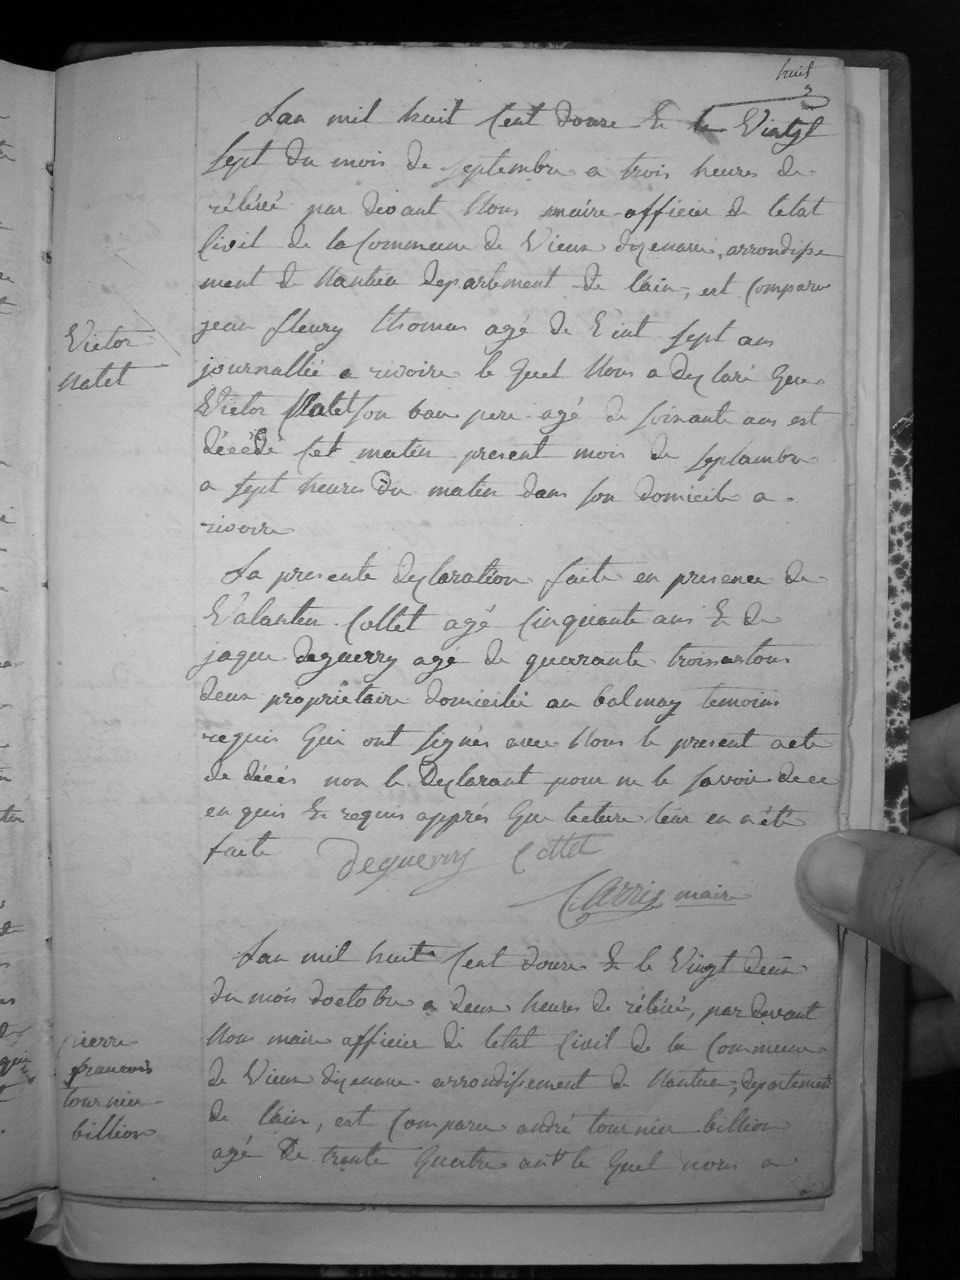 huit
Lan mil huit Cent douze & le Vingt
Sept du mois de septembre a trois heures de
rélévé par devant Nous maire officier de letat
Civil de la Commune de Vieux dizenave, arrondisse
ment de Nantua departement de lain, est Comparu
jean fleury thomas agé de Vint sept ans
journallié a rivoire le quel Nous a declaré que
Victor Natet
Victor Natet son bau pere agé de soixante ans est
décédé Cet matin present mois de septambre
a sept heures du matin dans son domicile a
rivoire
La presente declaration faite en presence de
Valanten Collet agé Cinquante ans & de
jaque deguerry agé de querrante trois ans tous
deux propriétaire domicilié au balmay temoins
requis qui ont signés avec Nous le present acte
de décés non le declarant pour ne le savoir de ce
en quis & requis apprés que lecture leur en a été
faite
Deguerry Collet
Carrier maire
Lan mil huit Cent douze & le Vingt deux
du mois doctobre a deux heures de rélévé, par devant
Nous maire officier de letat Civil de la Commune
de Vieux dizenave arrondissement de Nantua, departement
de lain, est Comparu andré tournier billion
agé de trente quatre ans le quel nous a
pierre
francois
tournier
billion